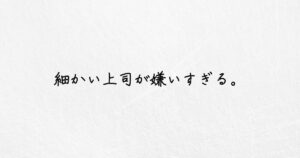 細かい上司が嫌いすぎる。